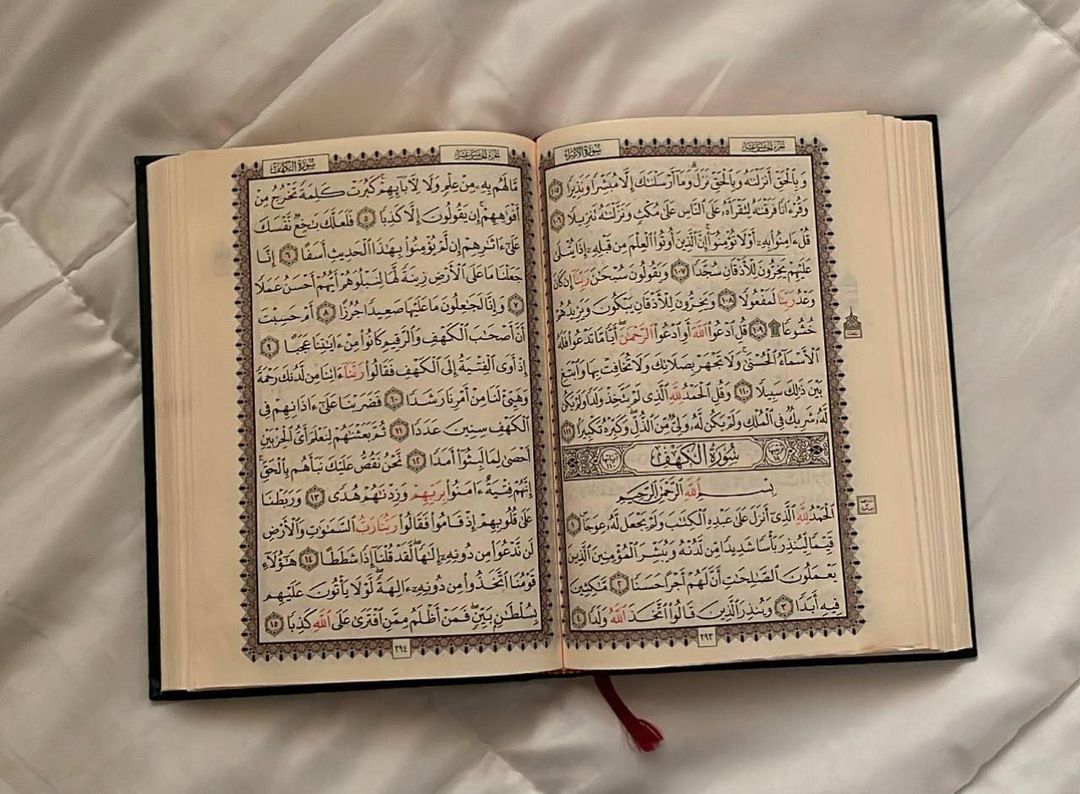 الجزء الخامس عشر سورة الإسراء
وَبِٱلْحَقِّ أَنزَلْنَٰهُ وَبِٱلْحَقِّ نَزَلَ ۗ وَمَآ أَرْسَلْنَٰكَ إِلَّا مُبَشِّرًا وَنَذِيرًا ١٠٥
وَقُرْءَانًا فَرَقْنَٰهُ لِتَقْرَأَهُۥ عَلَى ٱلنَّاسِ عَلَىٰ مُكْثٍ وَنَزَّلْنَٰهُ تَنزِيلًا ١٠٦
قُلْ ءَامِنُوا۟ بِهِۦٓ أَوْ لَا تُؤْمِنُوٓا۟ ۚ إِنَّ ٱلَّذِينَ أُوتُوا۟ ٱلْعِلْمَ مِن قَبْلِهِۦٓ إِذَا يُتْلَىٰ
عَلَيْهِمْ يَخِرُّونَ لِلْأَذْقَانِ سُجَّدًا ١٠٧ وَيَقُولُونَ سُبْحَٰنَ رَبِّنَآ إِن كَانَ
وَعْدُ رَبِّنَا لَمَفْعُولًا ١٠٨ وَيَخِرُّونَ لِلْأَذْقَانِ يَبْكُونَ وَيَزِيدُهُمْ
خُشُوعًا ۩ ١٠٩ قُلِ ٱدْعُوا۟ ٱللَّهَ أَوِ ٱدْعُوا۟ ٱلرَّحْمَٰنَ ۖ أَيًّا مَّا تَدْعُوا۟ فَلَهُ
ٱلْأَسْمَآءُ ٱلْحُسْنَىٰ ۚ وَلَا تَجْهَرْ بِصَلَاتِكَ وَلَا تُخَافِتْ بِهَا وَٱبْتَغِ
بَيْنَ ذَٰلِكَ سَبِيلًا ١١٠ وَقُلِ ٱلْحَمْدُ لِلَّهِ ٱلَّذِى لَمْ يَتَّخِذْ وَلَدًا وَلَمْ يَكُن
لَّهُۥ شَرِيكٌ فِى ٱلْمُلْكِ وَلَمْ يَكُن لَّهُۥ وَلِىٌّ مِّنَ ٱلذُّلِّ ۖ وَكَبِّرْهُ تَكْبِيرًۢا ١١١
سُورَةُ الكَهْفِ
بِسْمِ ٱللَّهِ ٱلرَّحْمَٰنِ ٱلرَّحِيمِ
ٱلْحَمْدُ لِلَّهِ ٱلَّذِىٓ أَنزَلَ عَلَىٰ عَبْدِهِ ٱلْكِتَٰبَ وَلَمْ يَجْعَل لَّهُۥ عِوَجَا ۜ ١
قَيِّمًا لِّيُنذِرَ بَأْسًا شَدِيدًا مِّن لَّدُنْهُ وَيُبَشِّرَ ٱلْمُؤْمِنِينَ ٱلَّذِينَ
يَعْمَلُونَ ٱلصَّٰلِحَٰتِ أَنَّ لَهُمْ أَجْرًا حَسَنًا ٢ مَّٰكِثِينَ
فِيهِ أَبَدًا ٣ وَيُنذِرَ ٱلَّذِينَ قَالُوا۟ ٱتَّخَذَ ٱللَّهُ وَلَدًا ٤
٢٩٣
الجزء الخامس عشر سورة الكهف
مَّا لَهُم بِهِۦ مِنْ عِلْمٍ وَلَا لِءَابَآئِهِمْ ۚ كَبُرَتْ كَلِمَةً تَخْرُجُ مِنْ
أَفْوَٰهِهِمْ ۚ إِن يَقُولُونَ إِلَّا كَذِبًا ٥ فَلَعَلَّكَ بَٰخِعٌ نَّفْسَكَ
عَلَىٰٓ ءَاثَٰرِهِمْ إِن لَّمْ يُؤْمِنُوا۟ بِهَٰذَا ٱلْحَدِيثِ أَسَفًا ٦ إِنَّا
جَعَلْنَا مَا عَلَى ٱلْأَرْضِ زِينَةً لَّهَا لِنَبْلُوَهُمْ أَيُّهُمْ أَحْسَنُ عَمَلًا
٧ وَإِنَّا لَجَٰعِلُونَ مَا عَلَيْهَا صَعِيدًا جُرُزًا ٨ أَمْ حَسِبْتَ
أَنَّ أَصْحَٰبَ ٱلْكَهْفِ وَٱلرَّقِيمِ كَانُوا۟ مِنْ ءَايَٰتِنَا عَجَبًا ٩
إِذْ أَوَى ٱلْفِتْيَةُ إِلَى ٱلْكَهْفِ فَقَالُوا۟ رَبَّنَآ ءَاتِنَا مِن لَّدُنكَ رَحْمَةً
وَهَيِّئْ لَنَا مِنْ أَمْرِنَا رَشَدًا ١٠ فَضَرَبْنَا عَلَىٰٓ ءَاذَانِهِمْ فِى
ٱلْكَهْفِ سِنِينَ عَدَدًا ١١ ثُمَّ بَعَثْنَٰهُمْ لِنَعْلَمَ أَىُّ ٱلْحِزْبَيْنِ
أَحْصَىٰ لِمَا لَبِثُوٓا۟ أَمَدًا ١٢ نَّحْنُ نَقُصُّ عَلَيْكَ نَبَأَهُم بِٱلْحَقِّ ۚ
إِنَّهُمْ فِتْيَةٌ ءَامَنُوا۟ بِرَبِّهِمْ وَزِدْنَٰهُمْ هُدًى ١٣ وَرَبَطْنَا
عَلَىٰ قُلُوبِهِمْ إِذْ قَامُوا۟ فَقَالُوا۟ رَبُّنَا رَبُّ ٱلسَّمَٰوَٰتِ وَٱلْأَرْضِ
لَن نَّدْعُوَا۟ مِن دُونِهِۦٓ إِلَٰهًا ۖ لَّقَدْ قُلْنَآ إِذًا شَطَطًا ١٤ هَٰٓؤُلَآءِ
قَوْمُنَا ٱتَّخَذُوا۟ مِن دُونِهِۦٓ ءَالِهَةً ۖ لَّوْلَا يَأْتُونَ عَلَيْهِم
بِسُلْطَٰنٍۭ بَيِّنٍ ۖ فَمَنْ أَظْلَمُ مِمَّنِ ٱفْتَرَىٰ عَلَى ٱللَّهِ كَذِبًا ١٥
٢٩٤